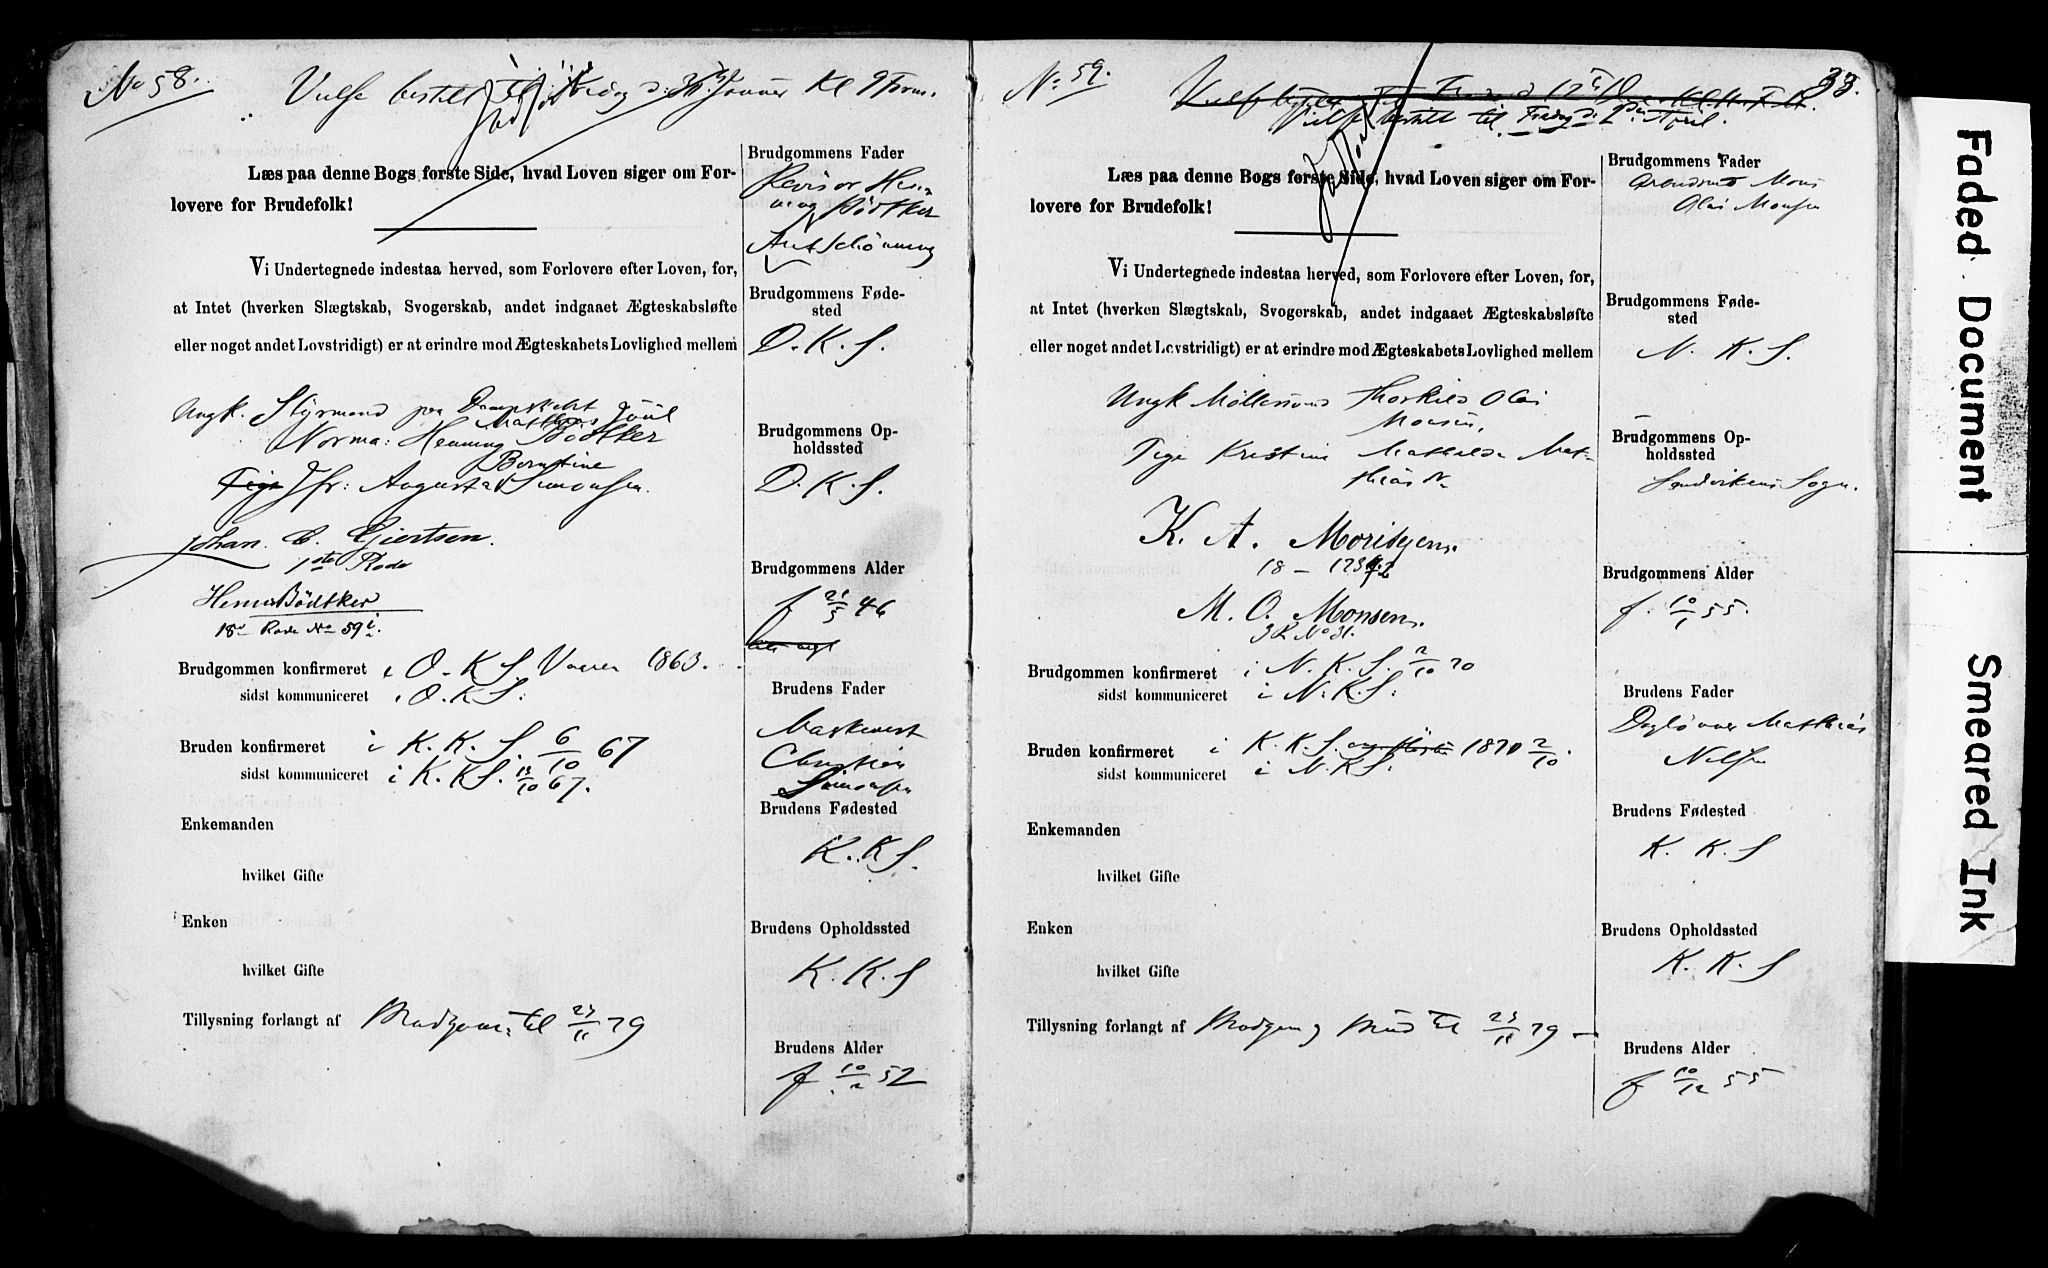 No 58.
Vielse bestilt til d: Januar Kl 9 Form.
Læs paa denne Bogs første Side, hvad Loven siger om For-
lovere for Brudefolk!
Vi Undertegnede indestaa herved, som Forlovere efter Loven, for,
at Intet (hverken Slægtskab, Svogerskab, andet indgaaet Ægteskabsløfte
eller noget andet Lovstridigt) er at erindre mod Ægteskabets Lovlighed mellem
Ungk. Styrmand paa Dampskibet
Norma: Henning Mathias Juul Bödtker
Jfr: Augusta Berntine Simonsen.
Johan. C. Gjertsen.
1ste Rode
Henn Bödtker
18de Rode No 59
Brudgommen konfirmeret i D.K.S. Vaaren 1863.
sidst kommuniceret i D.K.S.
Bruden konfirmeret i K.K.S. 6/10 67
sidst kommuniceret i K.K.S. 13/10 67.
Enkemanden
hvilket Gifte
Enken
hvilket Gifte
Tillysning forlangt af Brudgom: til 23/11 79
Brudgommens Fader
Revisor Hen-
ning Bödtker
Brudgommens Føde-
sted
D.K.S.
Brudgommens Op-
holdssted
D.K.S.
Brudgommens Alder
f 21/3 46
Brudens Fader
Christian
Simonsen
Brudens Fødested
K.K.S.
Brudens Opholdssted
K.K.S
Brudens Alder
f 10/2 52
No 59.
33.
Vielse bestilt til Fredag d: 2den April.
Læs paa denne Bogs første Side, hvad Loven siger om For-
lovere for Brudefolk!
Vi Undertegnede indestaa herved, som Forlovere efter Loven, for,
at Intet (hverken Slægtskab, Svogerskab, andet indgaaet Ægteskabsløfte
eller noget andet Lovstridigt) er at erindre mod Ægteskabets Lovlighed mellem
Ungk Møllersvend Thorkild Olai
Monsen,
Pige Kristine Mathilde Mat-
hias N.
K. A. Moritzen.
18 –
M. O. Monsen.
3 R No 31.
Brudgommen konfirmeret i N.K.S. 2/10 70
sidst kommuniceret i N.K.S.
Bruden konfirmeret i K.K.S. 1870 2/10
sidst kommuniceret i N.K.S.
Enkemanden
hvilket Gifte
Enken
hvilket Gifte
Tillysning forlangt af Brudgom og Brud til 23/11 79 –
Brudgommens Fader
Mons
Olai Monsen
Brudgommens Føde-
sted
N. K. S.
Brudgommens Op-
holdssted
Sandvikens Sogn.
Brudgommens Alder
f. 10/1 55.
Brudens Fader
Mathias
Nilsen
Brudens Fødested
K. K. S
Brudens Opholdssted
K. K. S
Brudens Alder
f 10/12 55
Faded Document
Smeared Ink